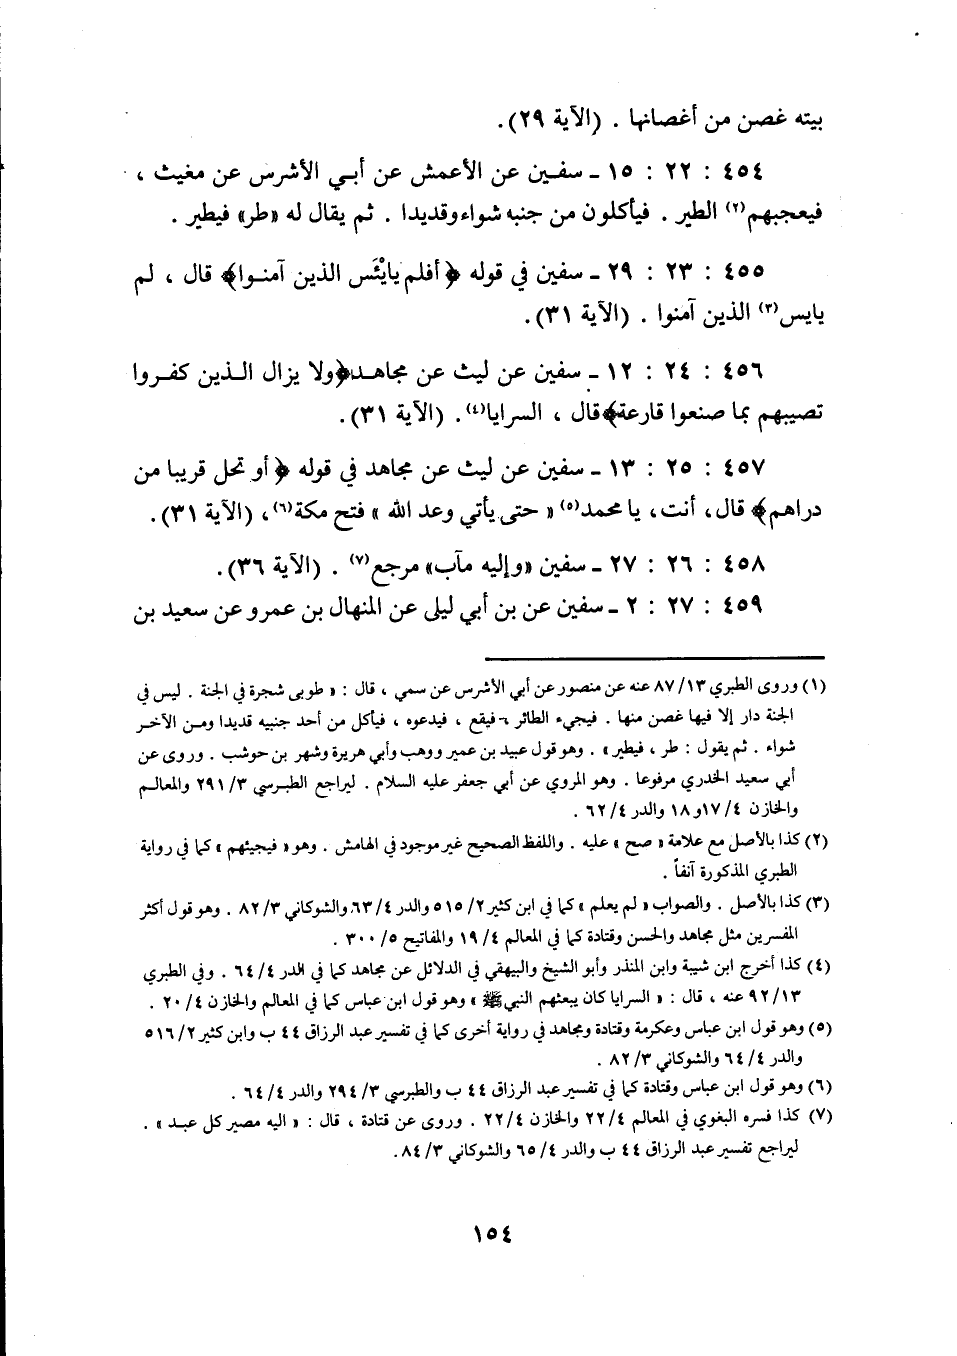 بيته غصن من أغصانها . (الآية ٢٩).
٤٥٤ : ٢٢ : ١٥ ـ سفـين عن الأعمش عن أبـي الأشرس عن مغيث ،
فيعجبهم(٢) الطير . فيأكلون من جنبه شواء وقديدا . ثم يقال له «طر» فيطير .
٤٥٥ : ٢٣ : ٢٩ ـ سفين في قوله ﴿أفلم يايْئَس الذين آمنـوا﴾ قال ، لم
يايس(٣) الذين آمنوا . (الآية ٣١).
٤٥٦ : ٢٤ : ١٢ ـ سفين عن ليث عن مجاهـد﴿ولا يزال الـذين كفـروا
تصيبهم بما صنعوا قارعة﴾قال ، السرايا(٤). (الآية ٣١).
٤٥٧ : ٢٥ : ١٣ ـ سفين عن ليث عن مجاهد في قوله ﴿أو تحل قريبا من
دراهم﴾ قال، أنت، يا محمد(٥) « حتى يأتي وعد الله » فتح مكة(٦)، (الآية ٣١).
٤٥٨ : ٢٦ : ٢٧ ـ سفين «وإليه مآب» مرجع(٧) . (الآية ٣٦).
٤٥٩ : ٢٧ : ٢ ـ سفين عن بن أبي ليلى عن المنهال بن عمرو عن سعيد بن
(١) وروى الطبري ١٣/ ٨٧ عنه عن منصور عن أبي الأشرس عن سمي ، قال : « طوبى شجرة في الجنة . ليس في
الجنة دار إلا فيها غصن منها . فيجيء الطائر فيقع ، فيدعوه ، فيأكل من أحد جنبيه قديدا ومـن الآخـر
شواء . ثم يقول : طر ، فيطير » . وهو قول عبيد بن عمير ووهب وأبي هريرة وشهر بن حوشب . وروى عن
أبي سعيد الخدري مرفوعا . وهو المروي عن أبي جعفر عليه السلام . ليراجع الطبـرسي ٣/ ٢٩١ والمعالـم
والخازن ٤/ ١٧و١٨ والدر ٤/ ٦٢ .
(٢) كذا بالأصل مع علامة « صح » عليه . واللفظ الصحيح غير موجود في الهامش . وهو « فيجيئهم » كما في رواية
الطبري المذكورة آنفاً .
(٣) كذا بالأصل . والصواب « لم يعلم » كما في ابن كثير ٢/ ٥١٥ والدر ٤/ ٦٣ والشوكاني ٣/ ٨٢ . وهو قول أكثر
المفسرين مثل مجاهد والحسن وقتادة كما في المعالم ٤/ ١٩ والمفاتيح ٥/ ٣٠٠ .
(٤) كذا أخرج ابن شيبة وابن المنذر وأبو الشيخ والبيهقي في الدلائل عن مجاهد كما في الدر ٤/ ٦٤ . وفي الطبري
١٣/ ٩٢ عنه ، قال : « السرايا كان يبعثهم النبي ﷺ » وهو قول ابن عباس كما في المعالم والخازن ٤/ ٢٠ .
(٥) وهو قول ابن عباس وعكرمة وقتادة ومجاهد في رواية أخرى كما في تفسير عبد الرزاق ٤٤ ب وابن كثير ٢/ ٥١٦
والدر ٤/ ٦٤ والشوكاني ٣/ ٨٢ .
(٦) وهو قول ابن عباس وقتادة كما في تفسير عبد الرزاق ٤٤ ب والطبرسي ٣/ ٢٩٤ والدر ٤/ ٦٤ .
(٧) كذا فسره البغوي في المعالم ٤/ ٢٢ والخازن ٤/ ٢٢ . وروى عن قتادة ، قال : « اليه مصير كل عبـد » .
ليراجع تفسير عبد الرزاق ٤٤ ب والدر ٤/ ٦٥ والشوكاني ٣/ ٨٤.
١٥٤